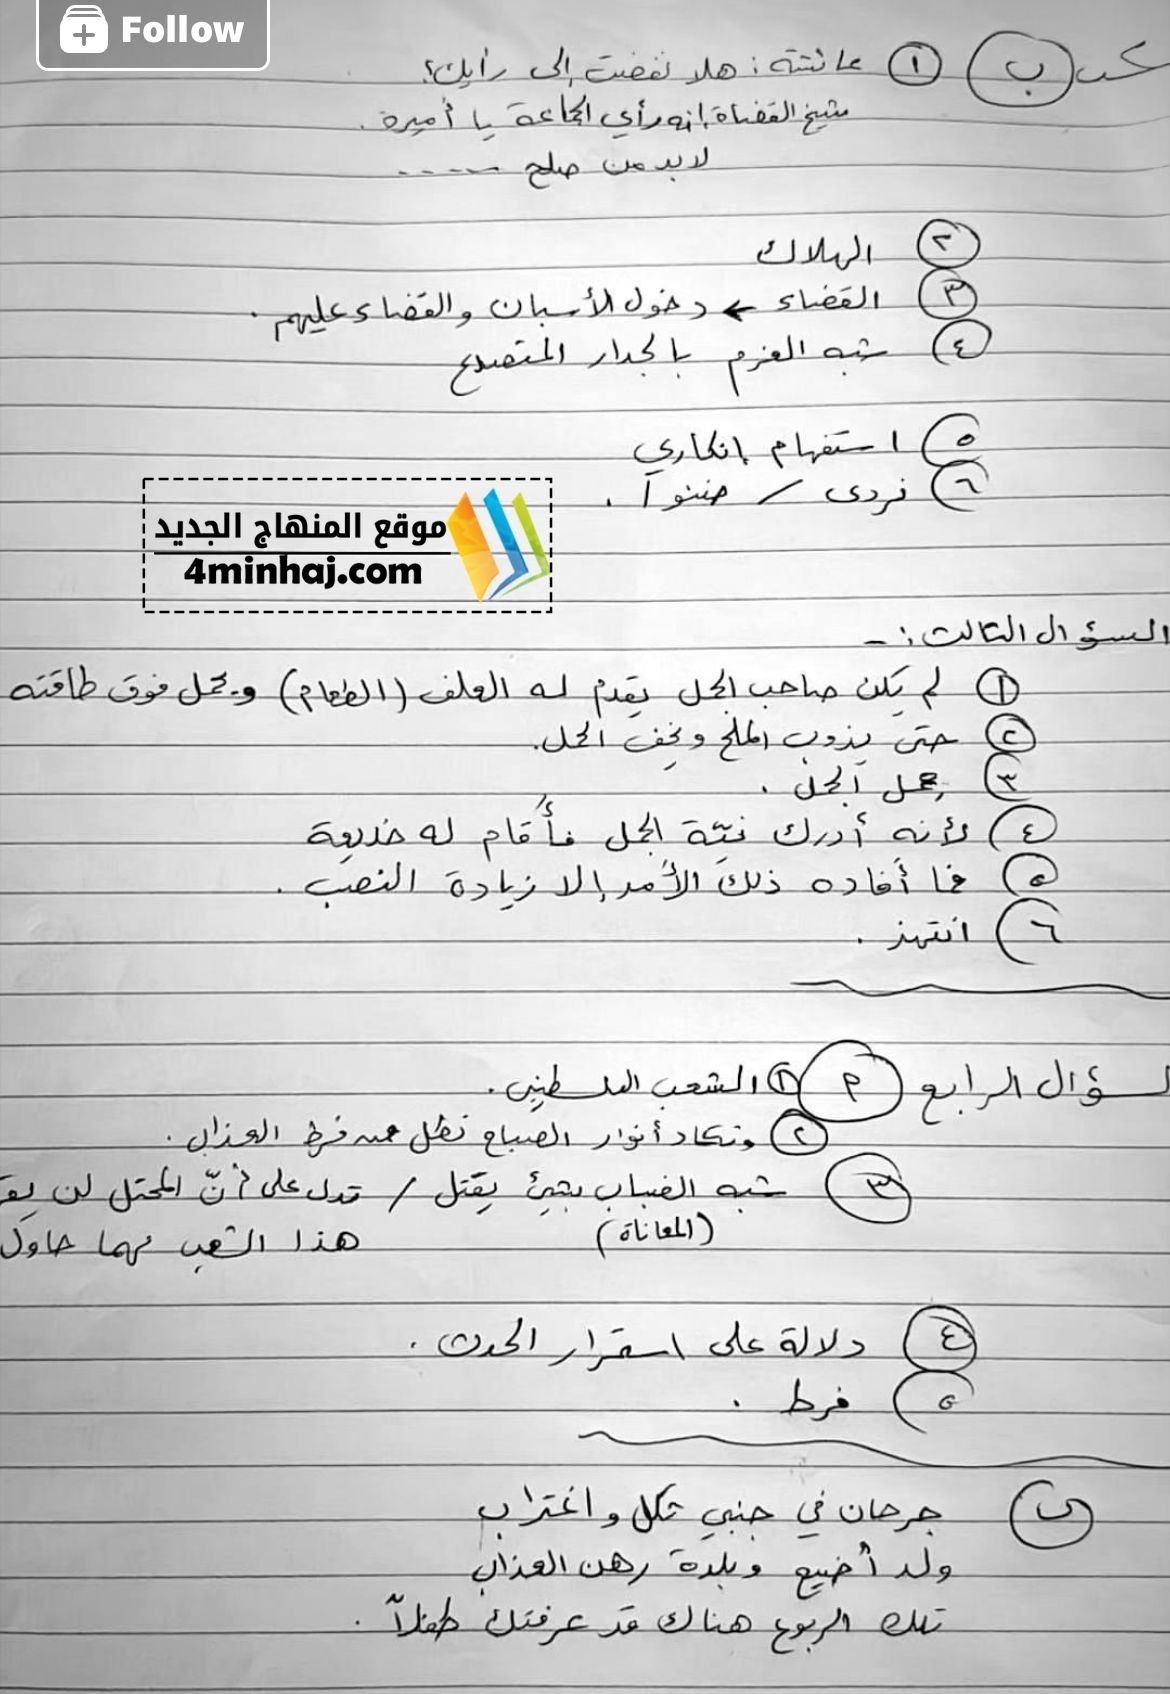 Follow
ب ١ عائشة: هلا نفضت إلى رأيك؟
شيخ القضاة: إنه رأي الجماعة يا أميرة.
لا بد من صلح -----
٢ الهلاك
٣ القضاء ← دخول الأسبان والقضاء عليهم.
٤ شبه العزم بالجدار المتصدع
٥ استفهام إنكاري
٦ فردى /
موقع المنهاج الجديد
4minhaj.com
السؤال الثالث:-
١ لم يكن صاحب الجمل يقدم له العلف (الطعام) ويحمل فوق طاقته
٢ حتى يذوب الملح ويخف الحمل.
٣ الجمل.
٤ لأنه أدرك نيّة الجمل فأقام له خديعة
٥ فما أفاده ذلك الأمر إلا زيادة النصب.
٦ انتهز.
سؤال الرابع ١ الشعب الفلسطيني.
٢ وتكاد أنوار الصباح تطل من فرط العذاب.
٣ شبه الضباب بشيء يقتل / تدل على أنّ المحتل لن
(المعاناة) هذا الشعب مهما حاول
٤ دلالة على استمرار الحدث.
٥ فرط.
ب جرحان في جنبي ثكل واغتراب
ولد أضيع وبلدة رهن العذاب
تلك الربوع هناك قد عرفتك طفلاً.